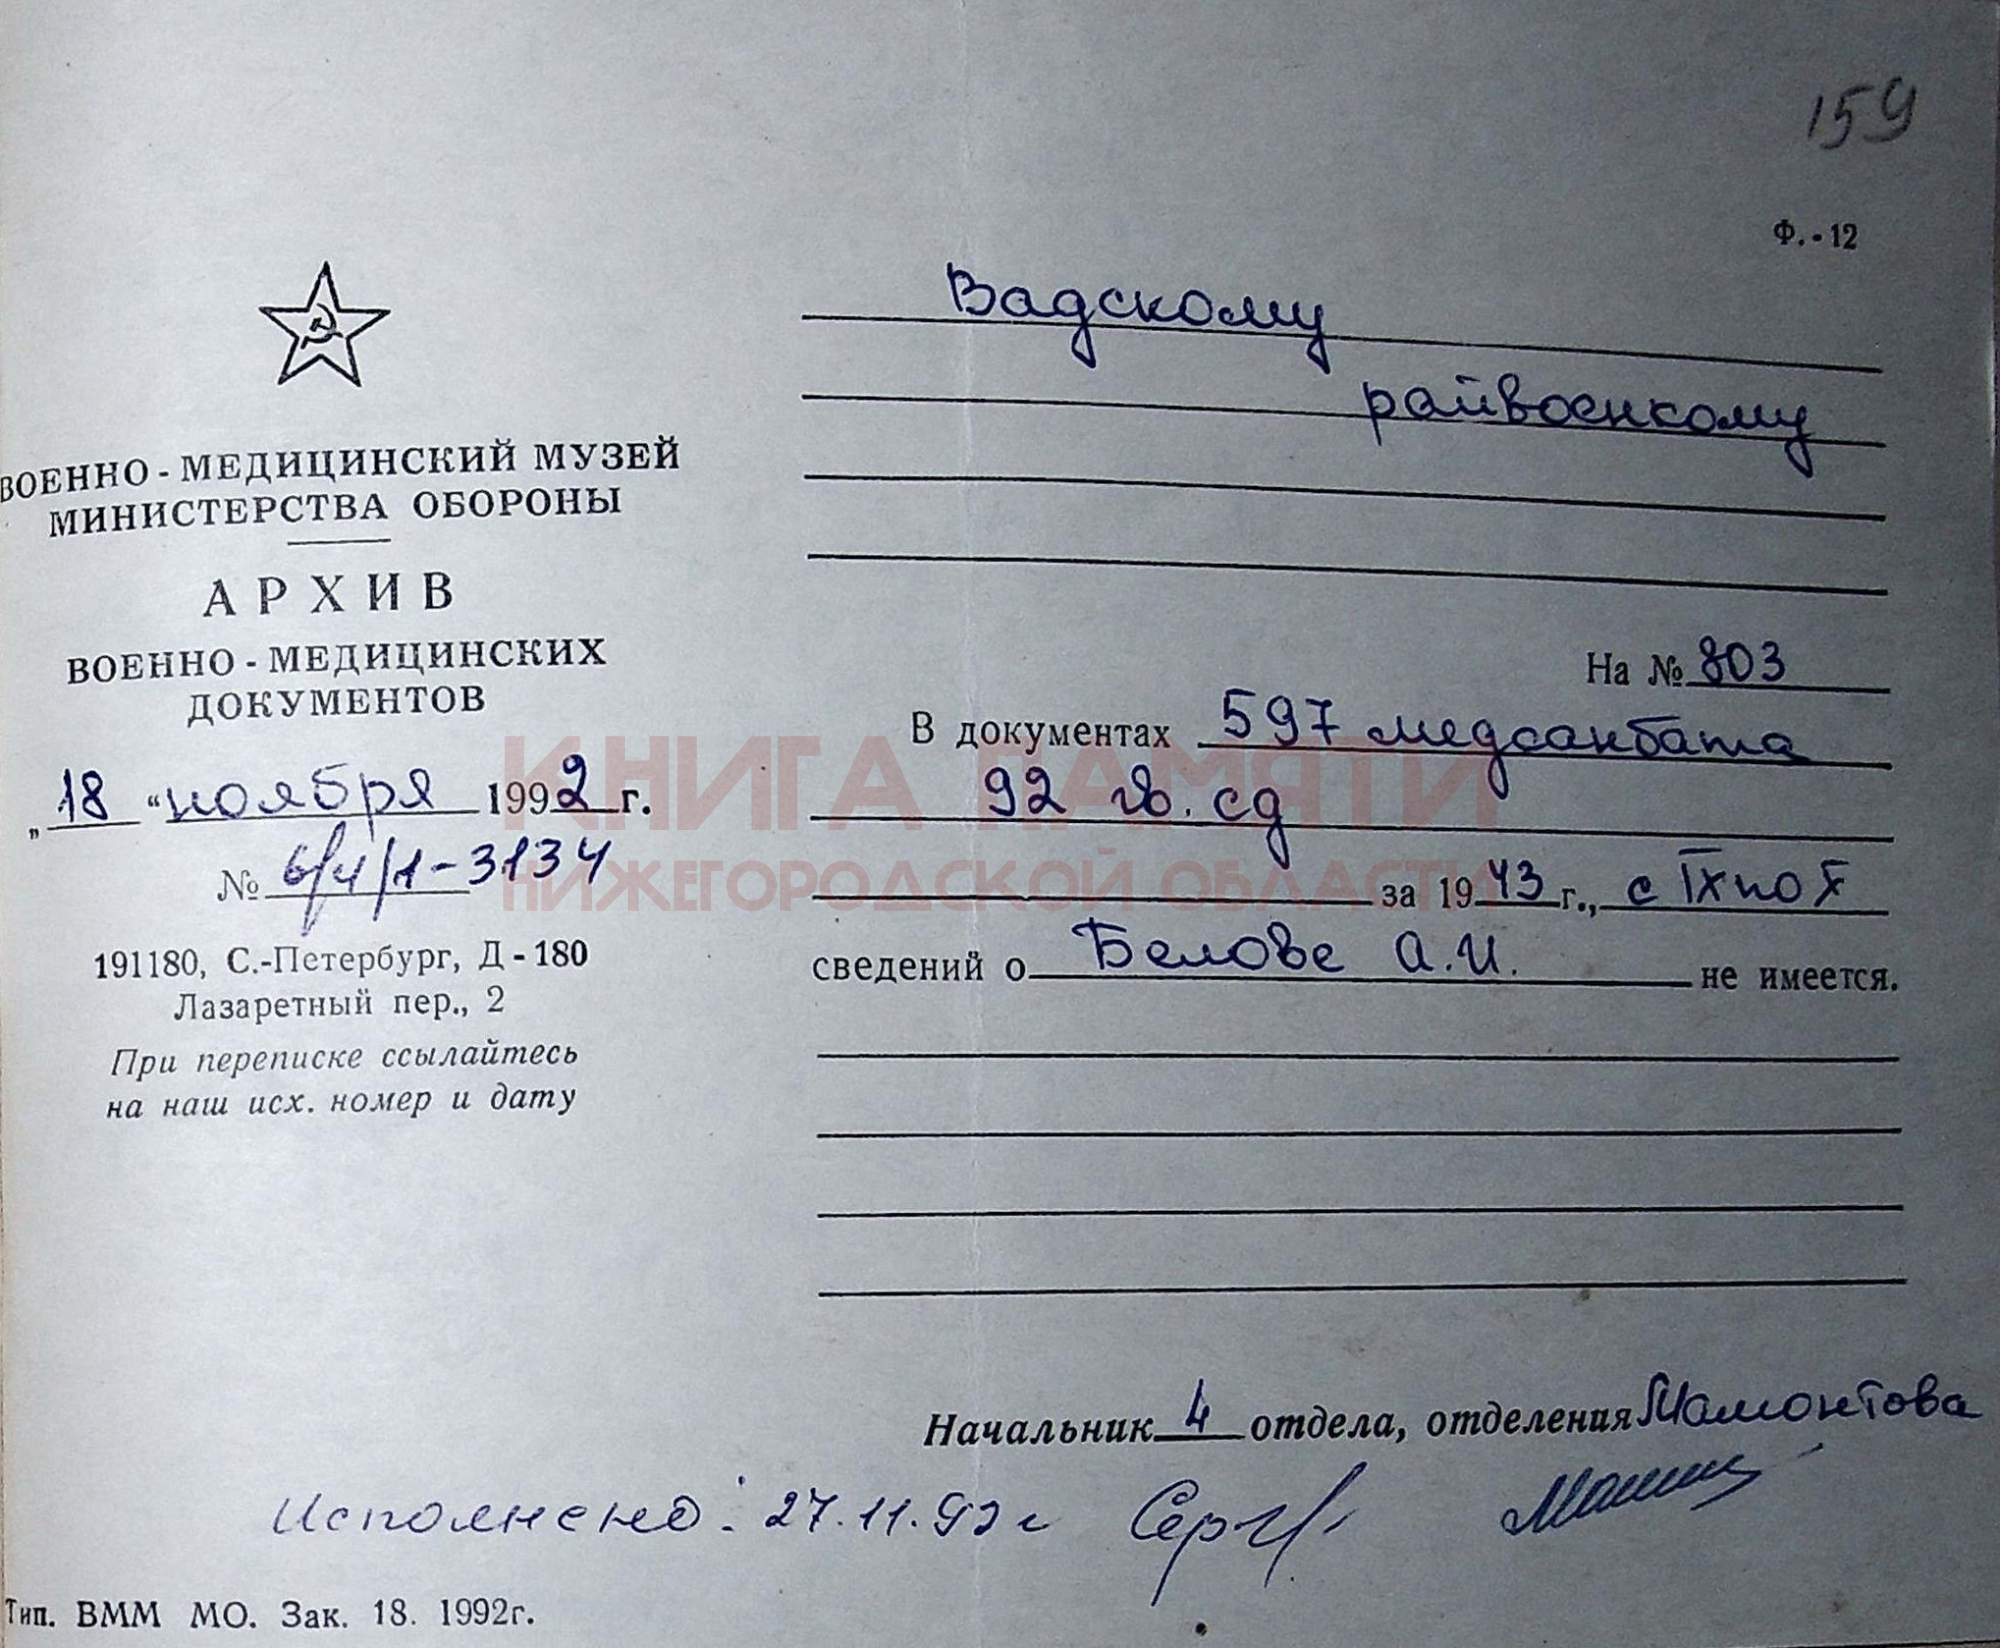 159
Ф.-12
ВОЕННО-МЕДИЦИНСКИЙ МУЗЕЙ
МИНИСТЕРСТВА ОБОРОНЫ
АРХИВ
ВОЕННО-МЕДИЦИНСКИХ
ДОКУМЕНТОВ
„18“ ноября 1992 г.
№ 6/4/1-3134
191180, С.-Петербург, Д-180
Лазаретный пер., 2
При переписке ссылайтесь
на наш исх. номер и дату
Вадскому
райвоенкому
На № 803
В документах 597 медсанбата
92 гв. сд
за 1943 г., с IX по X
сведений о Белове А.И. не имеется.
КНИГА ПАМЯТИ
НИЖЕГОРОДСКОЙ ОБЛАСТИ
Начальник 4 отдела, отделения Мамонтова
Исполнено: 27.11.92 г
Тип. ВММ МО. Зак. 18. 1992г.